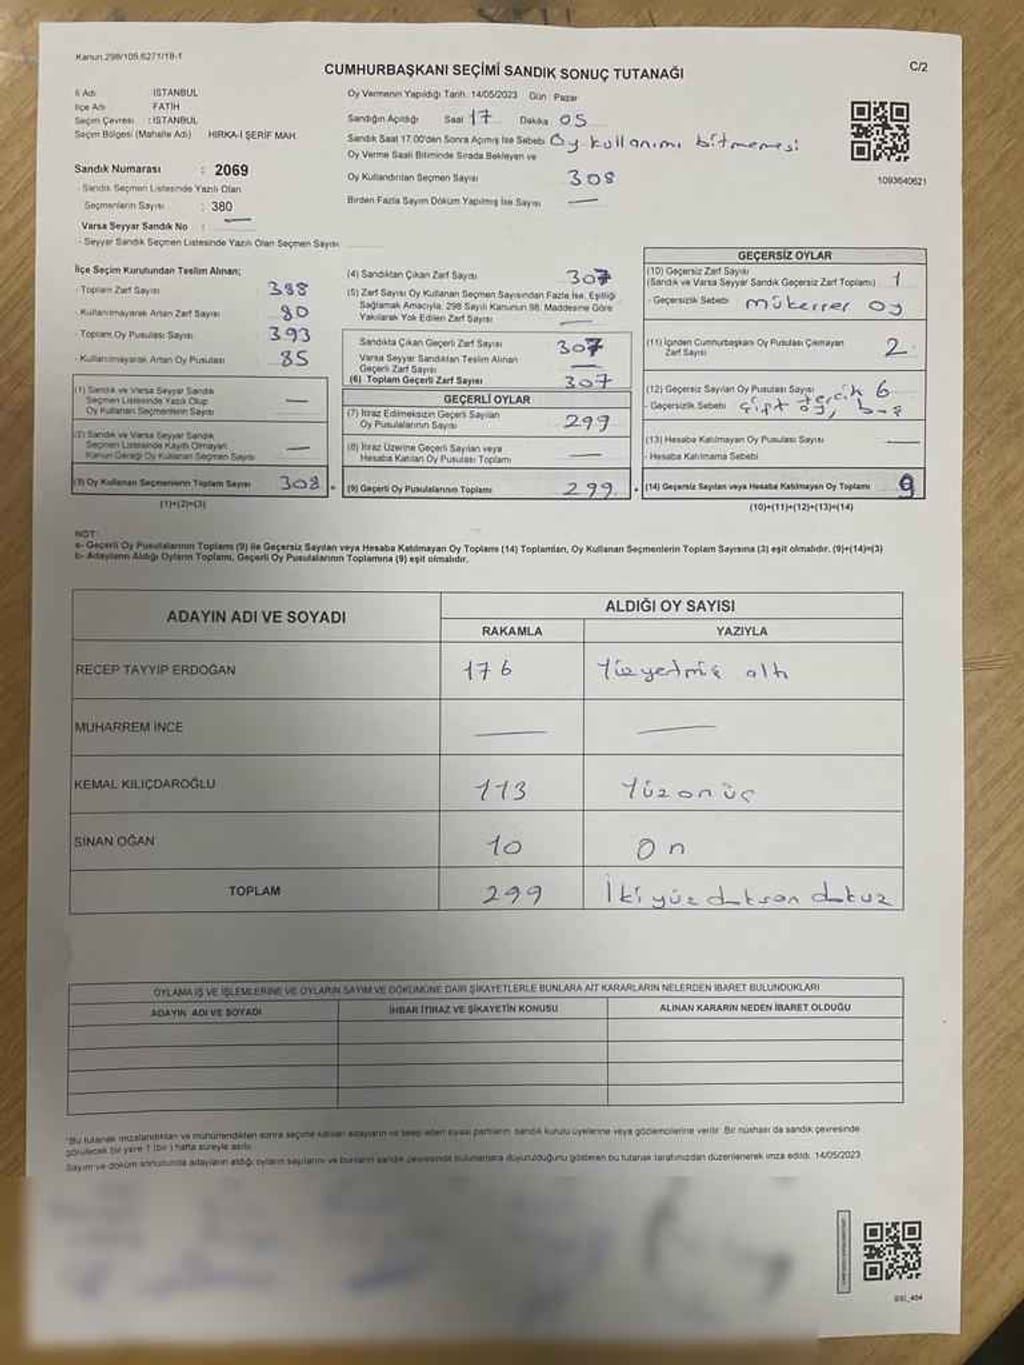 Kanun.298/105.6271/18-1
C/2
CUMHURBAŞKANI SEÇİMİ SANDIK SONUÇ TUTANAĞI
İl Adı : İSTANBUL
İlçe Adı : FATİH
Seçim Çevresi : İSTANBUL
Seçim Bölgesi (Mahalle Adı) HIRKA-İ ŞERİF MAH.
Sandık Numarası : 2069
- Sandık Seçmen Listesinde Yazılı Olan
Seçmenlerin Sayısı : 380
Varsa Seyyar Sandık No : —
- Seyyar Sandık Seçmen Listesinde Yazılı Olan Seçmen Sayısı
Oy Vermenin Yapıldığı Tarih: 14/05/2023 Gün : Pazar
Sandığın Açıldığı Saat 17 Dakika 05
Sandık Saat 17.00'den Sonra Açılmış İse Sebebi Oy kullanımı bitmemesi
Oy Verme Saati Bitiminde Sırada Bekleyen ve
Oy Kullandırılan Seçmen Sayısı 308
Birden Fazla Sayım Döküm Yapılmış İse Sayısı —
1093640621
İlçe Seçim Kurulundan Teslim Alınan;
- Toplam Zarf Sayısı 388
- Kullanılmayarak Artan Zarf Sayısı 80
- Toplam Oy Pusulası Sayısı 393
- Kullanılmayarak Artan Oy Pusulası 85
(1) Sandık ve Varsa Seyyar Sandık
Seçmen Listesinde Yazılı Olup
Oy Kullanan Seçmenlerin Sayısı —
(2) Sandık ve Varsa Seyyar Sandık
Seçmen Listesinde Kayıtlı Olmayan
Kanun Gereği Oy Kullanan Seçmen Sayısı —
(3) Oy Kullanan Seçmenlerin Toplam Sayısı 308
(1)+(2)=(3)
(4) Sandıktan Çıkan Zarf Sayısı 307
(5) Zarf Sayısı Oy Kullanan Seçmen Sayısından Fazla İse, Eşitliği
Sağlamak Amacıyla, 298 Sayılı Kanunun 98. Maddesine Göre
Yakılarak Yok Edilen Zarf Sayısı —
Sandıkta Çıkan Geçerli Zarf Sayısı 307
Varsa Seyyar Sandıktan Teslim Alınan
Geçerli Zarf Sayısı —
(6) Toplam Geçerli Zarf Sayısı 307
GEÇERLİ OYLAR
(7) İtiraz Edilmeksizin Geçerli Sayılan
Oy Pusulalarının Sayısı 299
(8) İtiraz Üzerine Geçerli Sayılan veya
Hesaba Katılan Oy Pusulası Toplamı —
(9) Geçerli Oy Pusulalarının Toplamı 299
GEÇERSİZ OYLAR
(10) Geçersiz Zarf Sayısı
(Sandık ve Varsa Seyyar Sandık Geçersiz Zarf Toplamı) 1
- Geçersizlik Sebebi mükerrer oy
(11) İçinden Cumhurbaşkanı Oy Pusulası Çıkmayan
Zarf Sayısı 2
(12) Geçersiz Sayılan Oy Pusulası Sayısı 6
- Geçersizlik Sebebi çift tercih oy,
(13) Hesaba Katılmayan Oy Pusulası Sayısı —
- Hesaba Katılmama Sebebi
(14) Geçersiz Sayılan veya Hesaba Katılmayan Oy Toplamı 9
(10)+(11)+(12)+(13)=(14)
NOT:
a- Geçerli Oy Pusulalarının Toplamı (9) ile Geçersiz Sayılan veya Hesaba Katılmayan Oy Toplamı (14) Toplamları, Oy Kullanan Seçmenlerin Toplam Sayısına (3) eşit olmalıdır. (9)+(14)=(3)
b- Adayların Aldığı Oyların Toplamı, Geçerli Oy Pusulalarının Toplamına (9) eşit olmalıdır.
ADAYIN ADI VE SOYADI
ALDIĞI OY SAYISI
RAKAMLA YAZIYLA
RECEP TAYYİP ERDOĞAN 176 Yüzyetmiş altı
MUHARREM İNCE — —
KEMAL KILIÇDAROĞLU 113 Yüzonüç
SİNAN OĞAN 10 On
TOPLAM 299 İkiyüz doksan dokuz
OYLAMA İŞ VE İŞLEMLERİNE VE OYLARIN SAYIM VE DÖKÜMÜNE DAİR ŞİKAYETLERLE BUNLARA AİT KARARLARIN NELERDEN İBARET BULUNDUKLARI
ADAYIN ADI VE SOYADI İHBAR İTİRAZ VE ŞİKAYETİN KONUSU ALINAN KARARIN NEDEN İBARET OLDUĞU
*Bu tutanak imzalandıktan ve mühürlendikten sonra seçime katılan adayların ve talep eden siyasi partilerin, sandık kurulu üyelerine veya gözlemcilerine verilir. Bir nüshası da sandık çevresinde
görülecek bir yere 1 (bir ) hafta süreyle asılır.
Sayım ve döküm sonucunda adayların aldığı oyların sayılarını ve bunların sandık çevresinde bulunanlara duyurulduğunu gösteren bu tutanak tarafımızdan düzenlenerek imza edildi. 14/05/2023